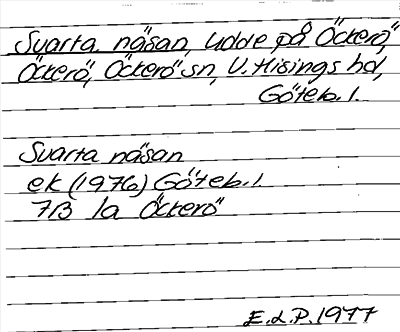 Svarta näsan, udde på Öckerö,
Öckerö, Öckerö sn, V. Hisings hd,
Göteb. l.
Svarta näsan
ek (1976) Göteb. l.
7B 1a Öckerö
E.d.P. 1977